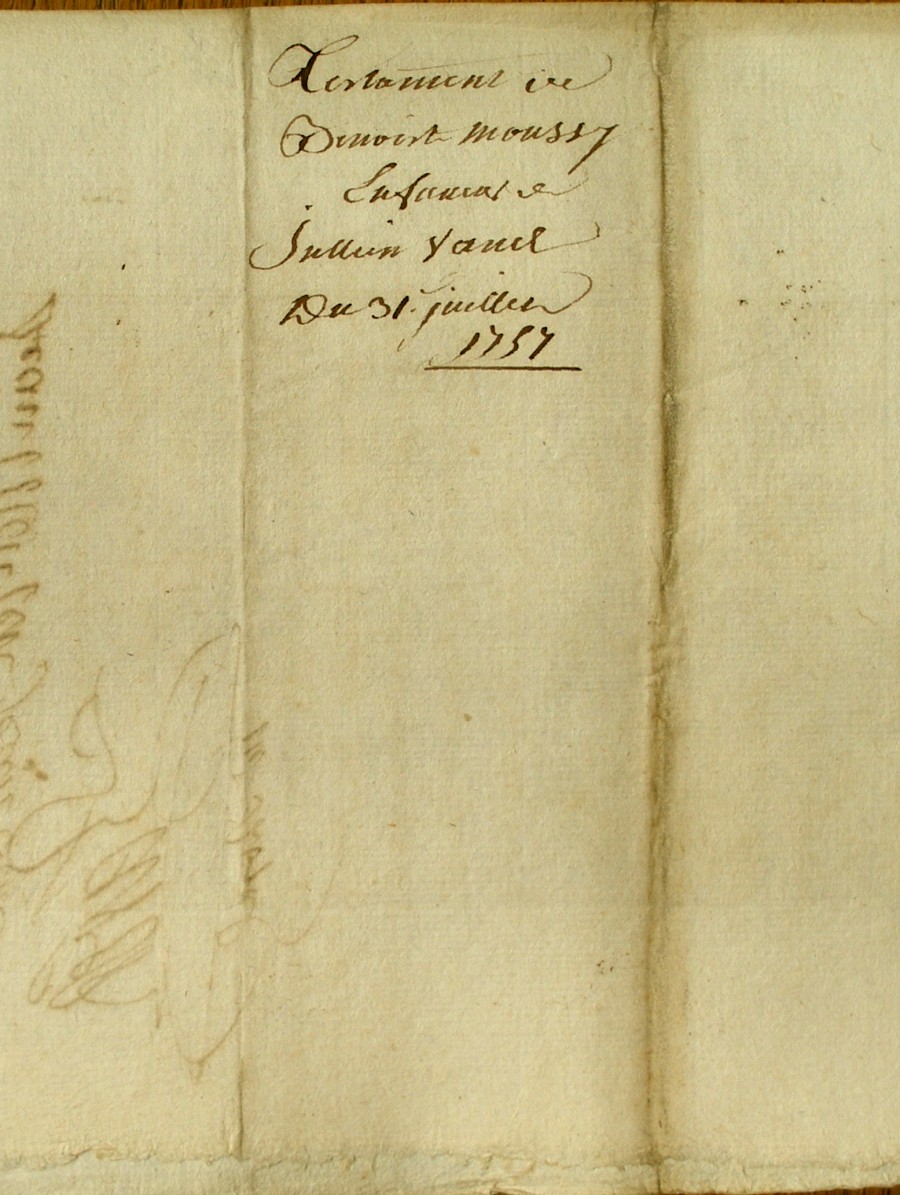 Testament de
Benoist moussy
En faveur de
Jullien Vanel
Du 31. juillet
1757